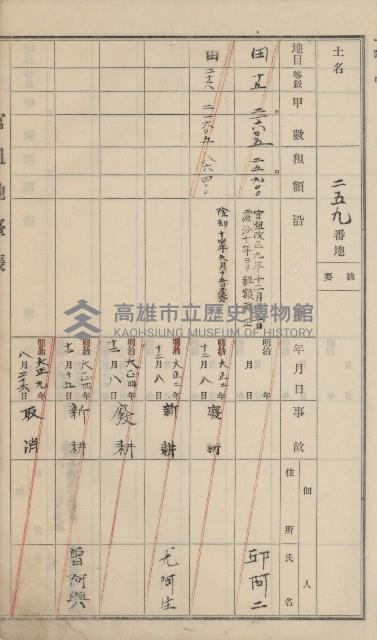 土名
二五九番地
摘要
地目
等級
甲數
租額
沿
年月日
事故
佃人
住所
氏名
田 十五 二、六〇五 二五九〇〇
田 十六 二、六〇五 八六四〇〇
官租改正九年十二月
大正十年ヨリ租額
明治 年 月 日
邱阿二
明治 大正二年 十二月八日 廢耕
明治 大正二年 十二月八日 新耕
尤阿生
明治 大正四年 十二月八日 廢耕
明治 大正四年 十二月十五日 新耕
曾阿興
明治 大正九年 八月二十六日 取消
官租地臺帳
高雄市立歷史博物館
KAOHSIUNG MUSEUM OF HISTORY